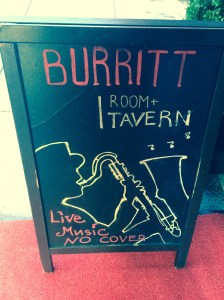 BURRITT
ROOM+
TAVERN
Live
Music
NO COVER